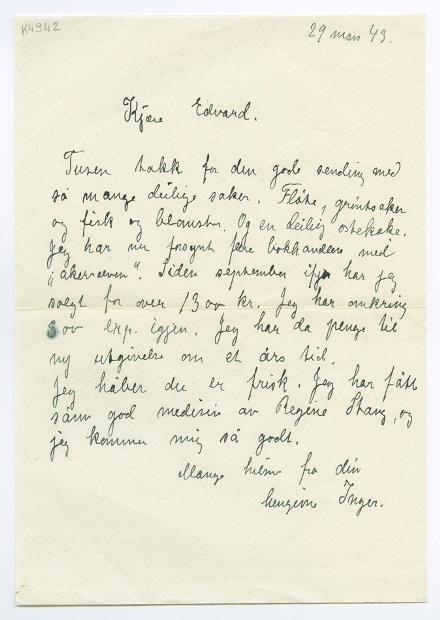 K4942
29 mars 43.
Kjære Edvard.
Tusen takk for din gode sending med
så mange deilige saker. Fløte, grøntsaker
og fisk og blomster. Og en deilig ostekake.
Jeg har nu forsynt flere bokhandlere med
"akerselven". Siden september ifjor har jeg
solgt for over 1300 kr. Jeg har omkring
300 exp. igjen. Jeg har da penge til
ny utgivelse om et års tid.
Jeg håber du er frisk. Jeg har fått
sånn god medisin av Regine Stang, og
jeg kommer mig så godt.
Mange hilsner fra din
hengivne Inger.